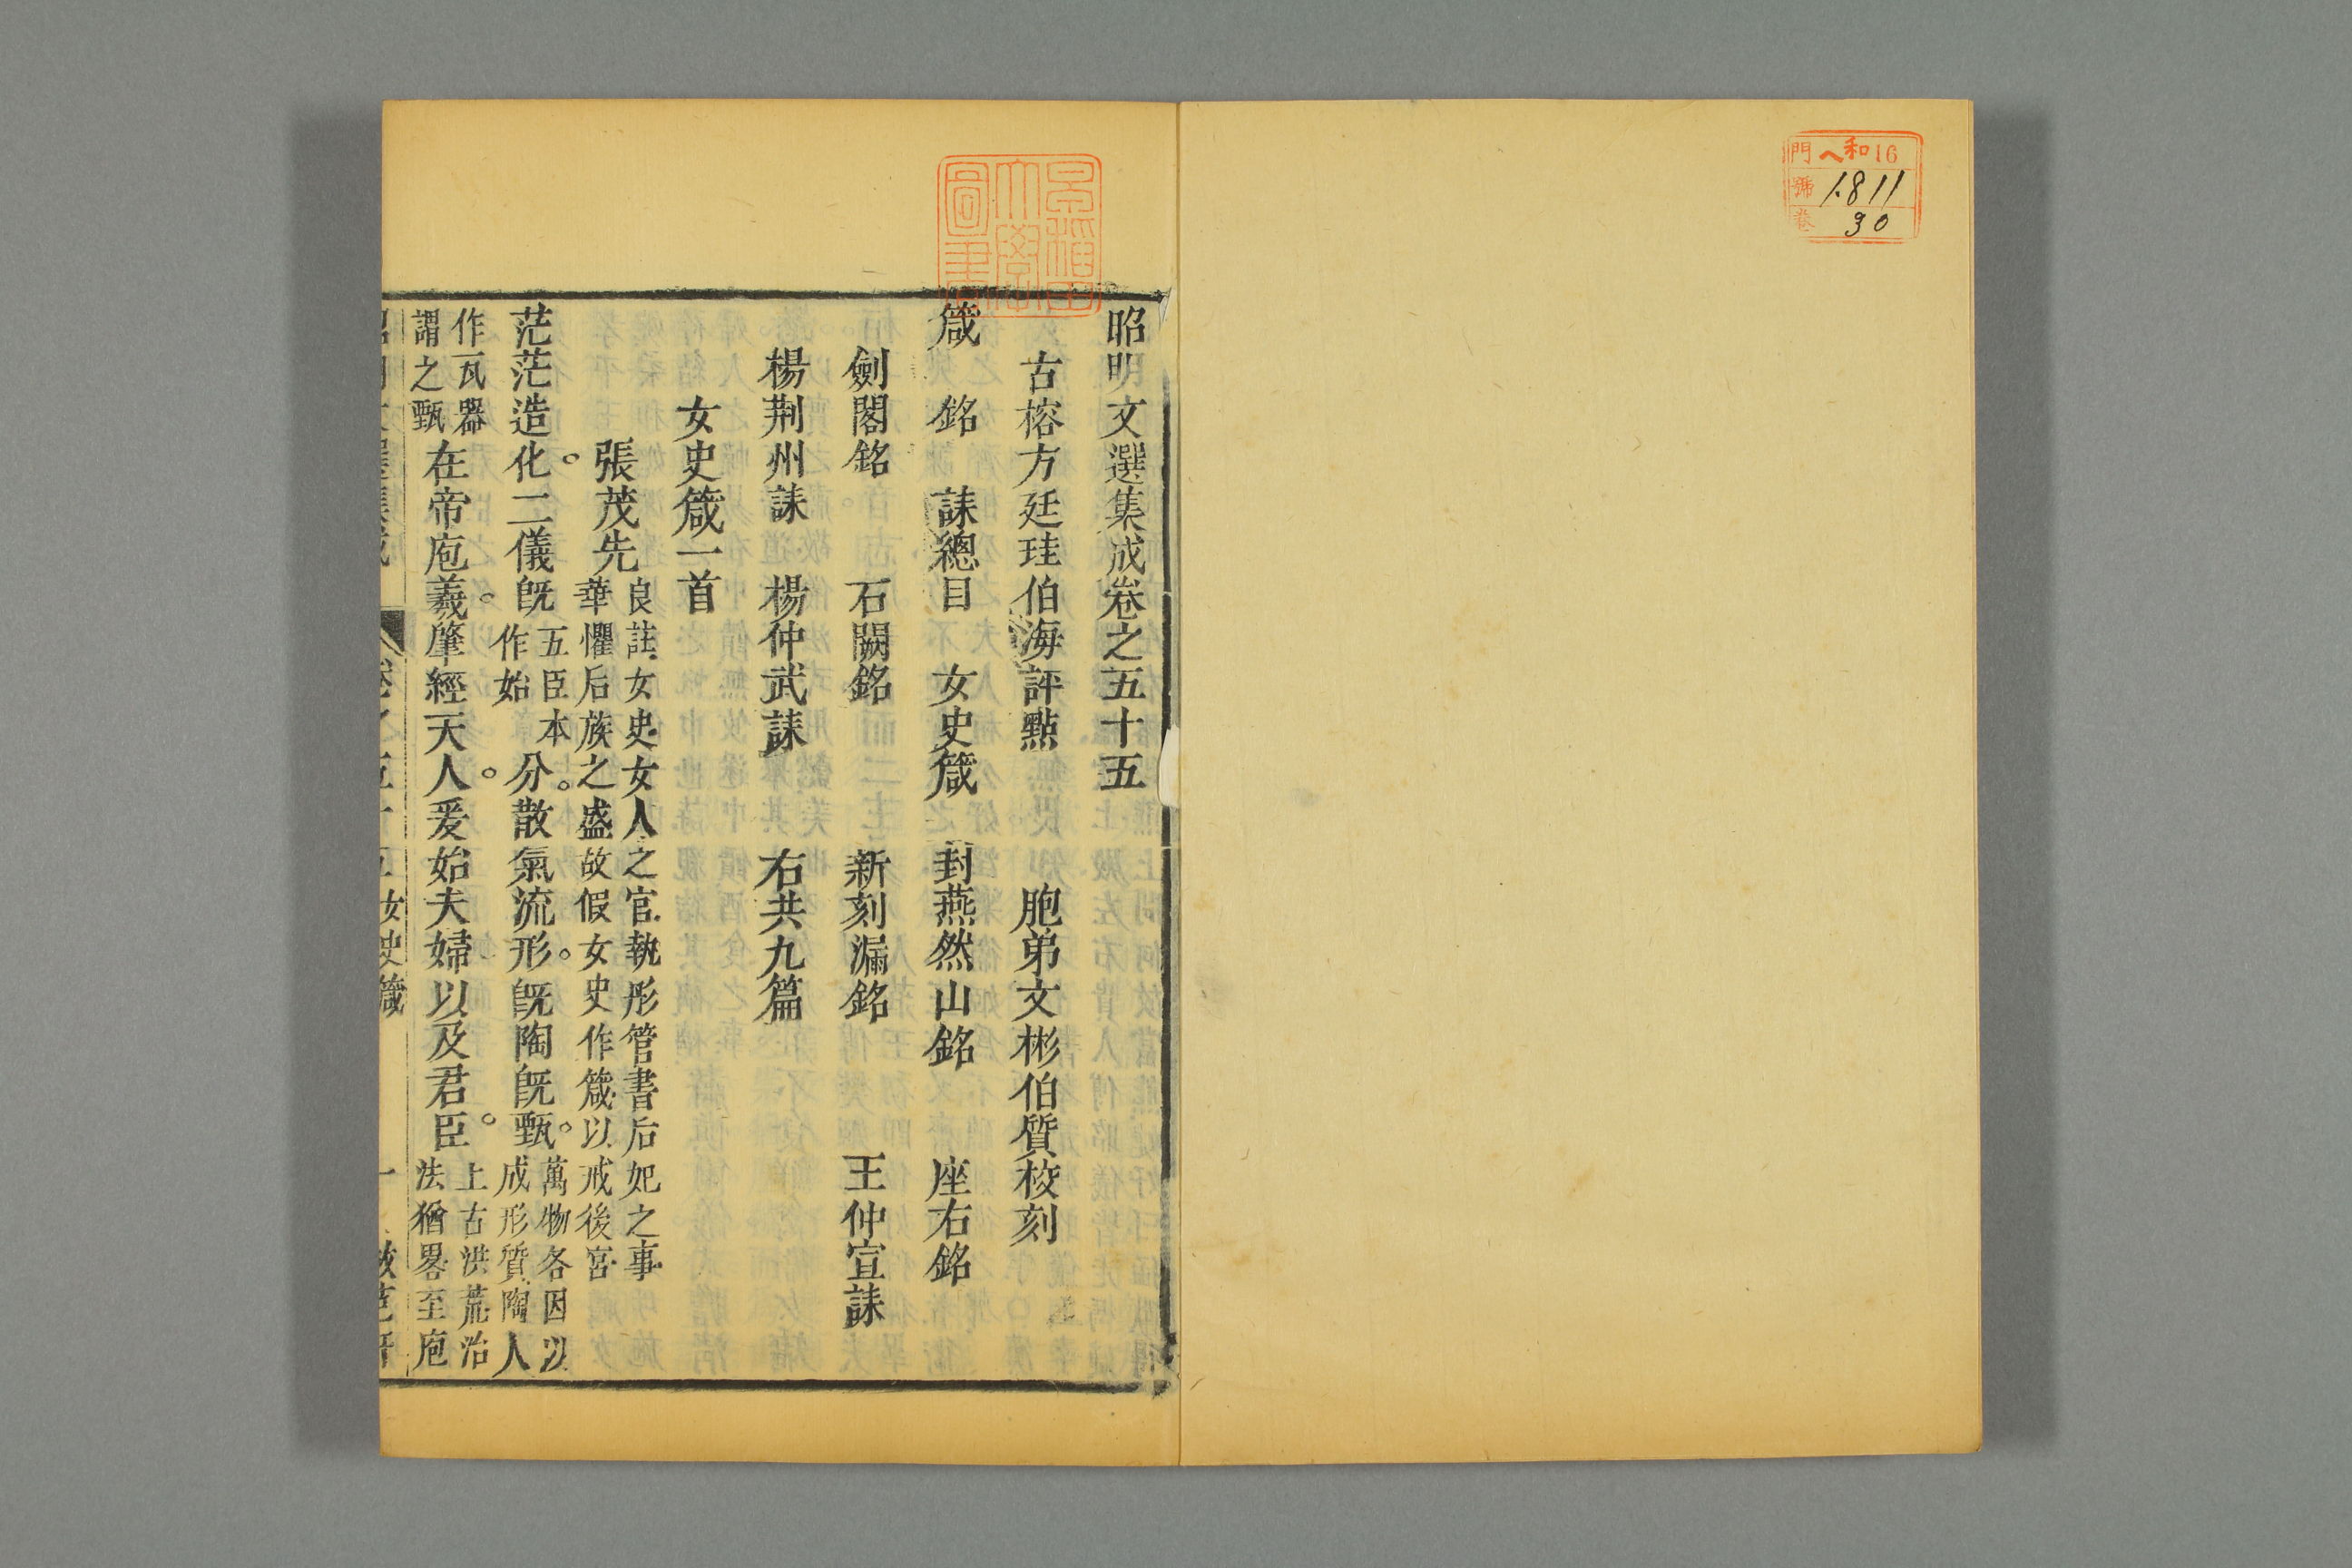 門 ヘ和16
號 1811
卷 30
早稲田大學圖書
昭明文選集成卷之五十五
古榕方廷珪伯海評點 胞弟文彬伯質校刻
箴 銘 誄總目 女史箴 封燕然山銘 座右銘
劍閣銘 石闕銘 新刻漏銘 王仲宣誄
楊荆州誄 楊仲武誄 右共九篇
女史箴一首
張茂先 良註女史女人之官執彤管書后妃之事
華懼后族之盛故假女史作箴以戒後宮
茫茫造化。二儀旣 五臣本
作始 分。散氣流形。旣陶旣甄。 萬物各因以
成形質陶人
作瓦器
謂之甄 在帝庖羲。肇經天人。爰始夫婦。以及君臣。 上古洪荒治
法猶畧至庖
卷之五十五 女史箴 一